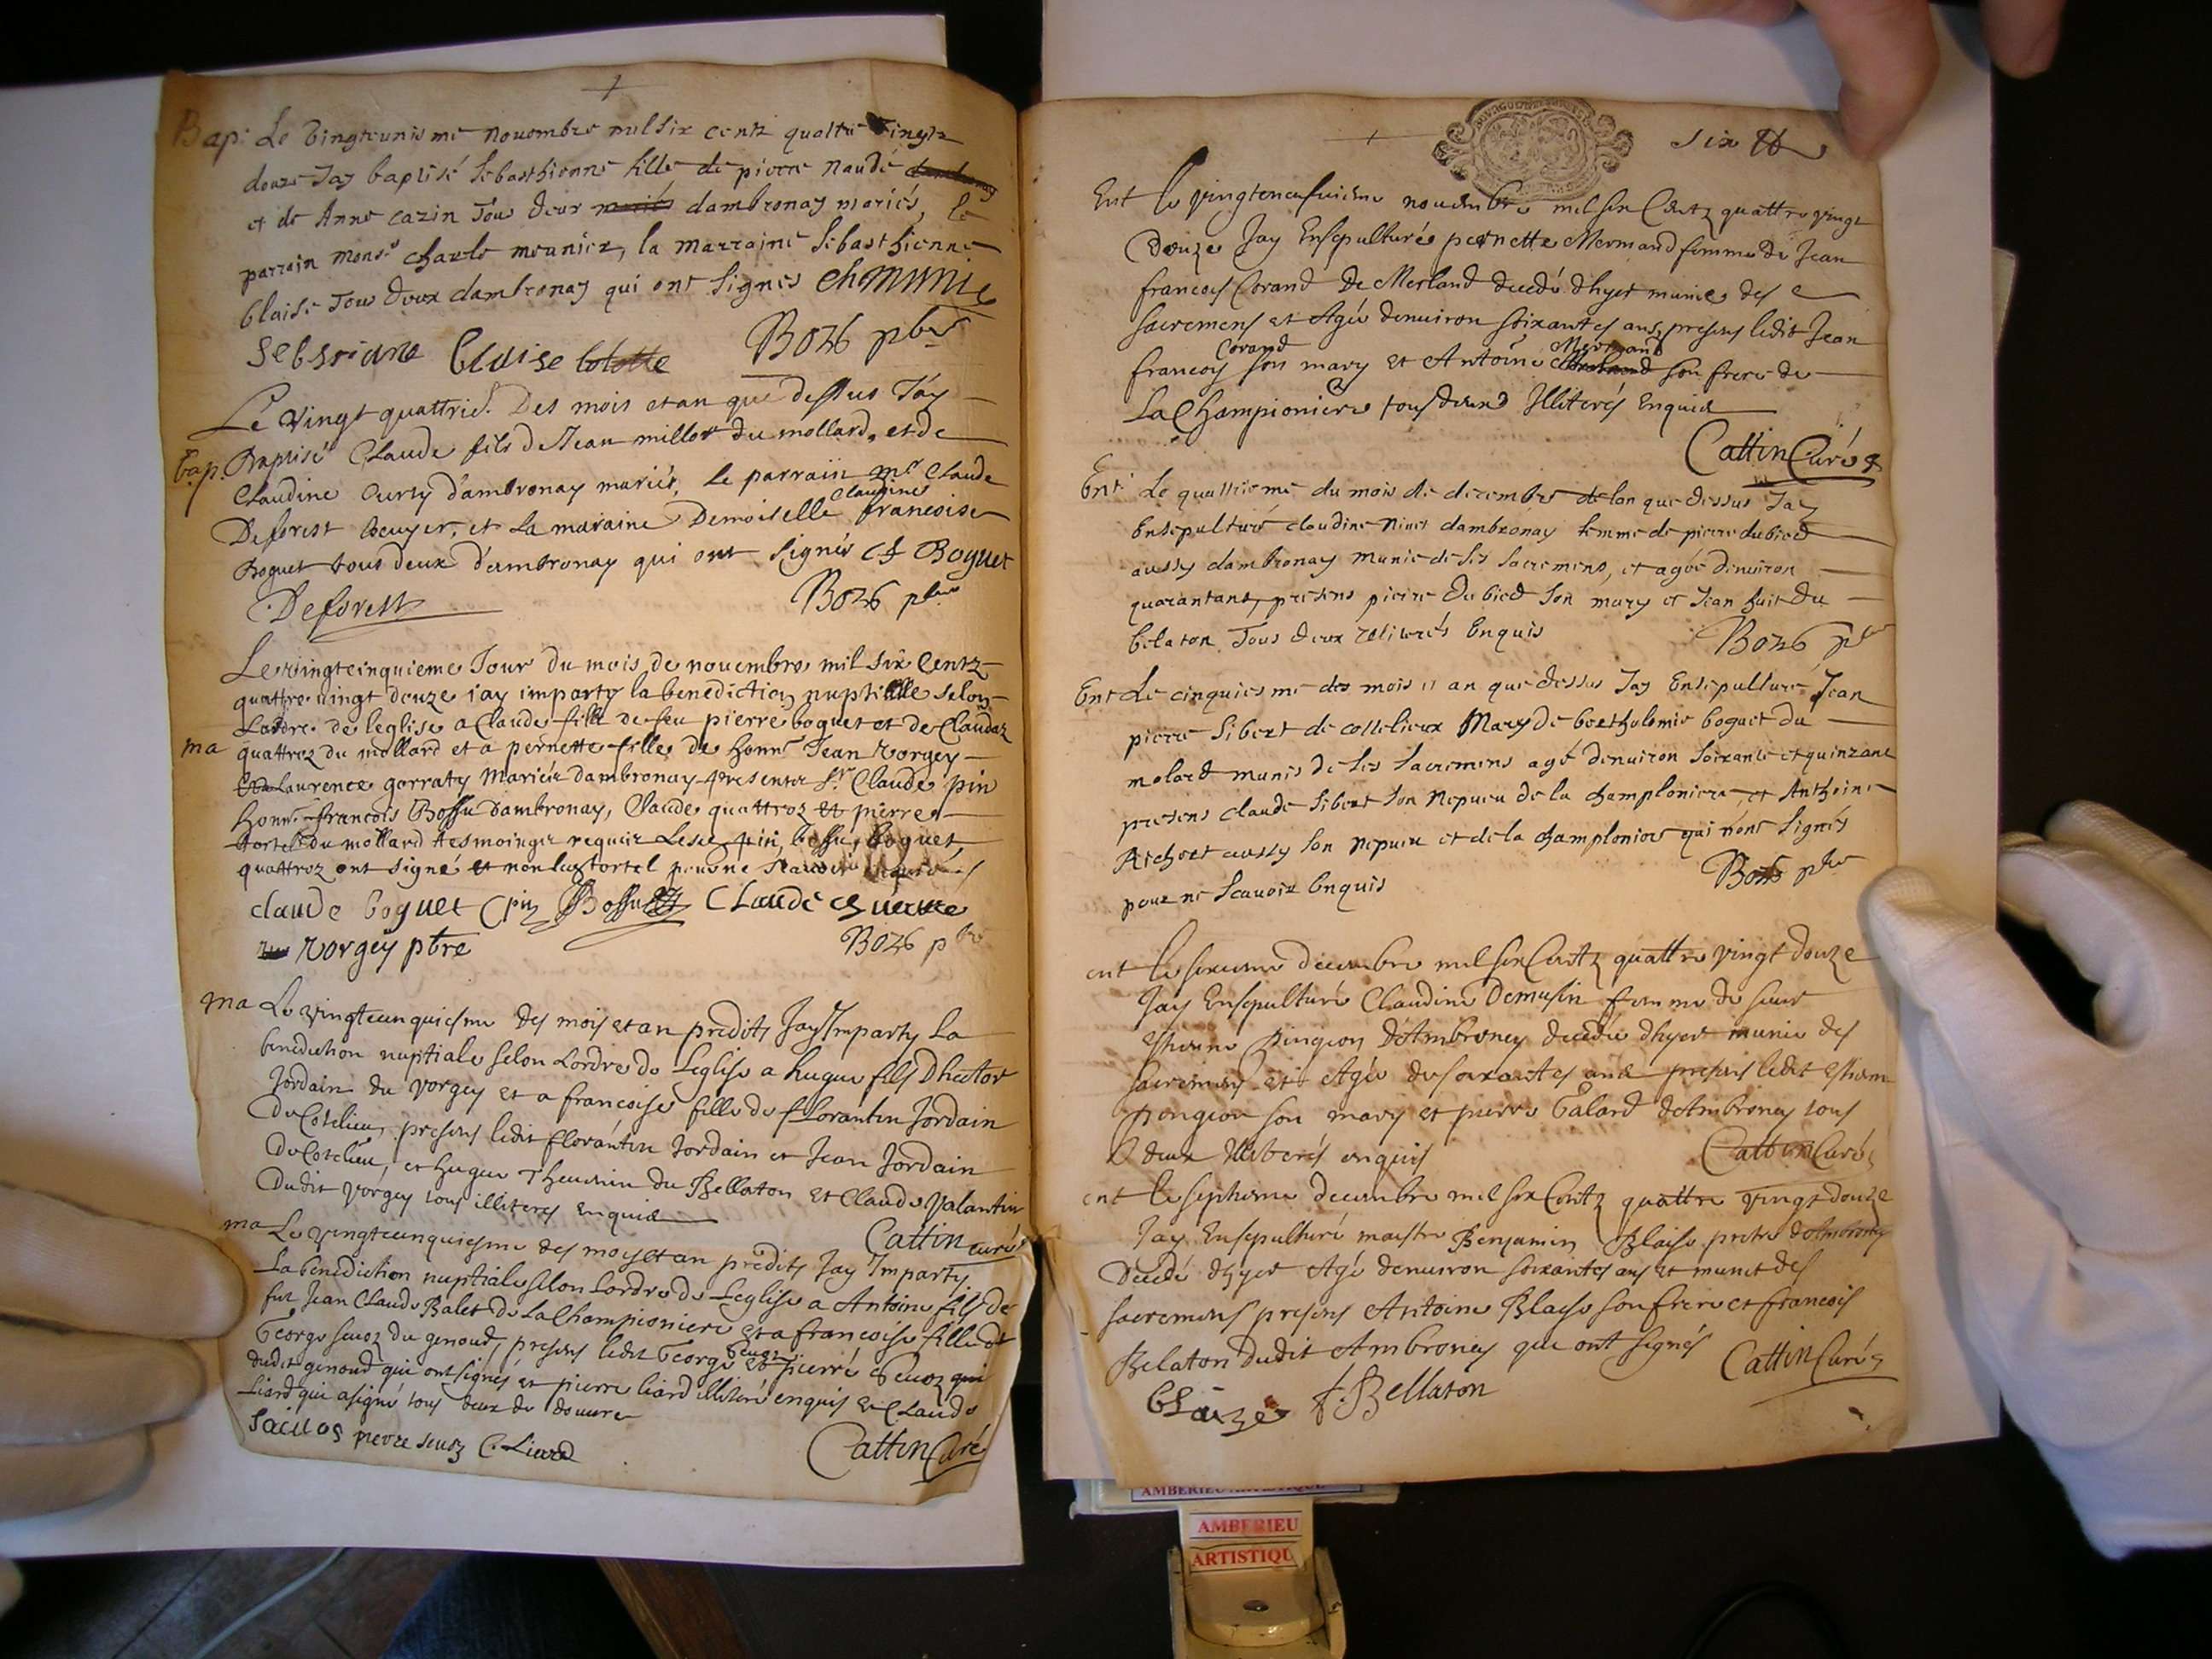 Bap. Le vingteunisme novembre mil six centz quattre vingtz
douze Jay baptisé Sebasthienne fille de pierre naudé
et de Anne cazin Tous deux dambronay mariés, le
parrain Monsr charle meunier, la marraine Sebasthienne
blaise Tous deux dambronay qui ont signés
blaise
Le vingt quattrie. Des mois et an que dessus J'ay
bap. Baptisé Claude fils de Jean millot du mollard, et de
Claudine Curty d'ambronay mariés, le parrain mr Claude
Deforest Escuyer, et la maraine Demoiselle Claudine francoise
Boguet tous deux d'ambronay qui ont signés Boguet
Deforest
Le vingtcinquieme Jour du mois de novembre mil six Centz
quattre vingt douze j'ay imparty la benediction nuptialle selon
Lordre de leglise a Claude fils de feu pierre boguet et de Claudaz
ma quattroz du mollard et a pernette fille de honn. Jean vorgey
Laurence gorraty Mariés dambronay presentz Sr. Claude pin
honn. francois Bossu dambronay, Claude quattroz et pierre
tortel du mollard tesmoingz requis Lesd. pin, bossu, boguet,
quattroz ont signé et non led. tortel
claude boguet Cpin Bossu Claude
vorgey ptre
ma Le vingtcinquiesme des mois et an predits Jay Imparty La
benediction nuptiale selon Lordre de Leglise a hugue fils Dhector
Jordain du vorgey et a francoise fille de florantin Jordain
Du Cotelieu, presens ledit florantin Jordain et Jean Jordain
Du Cotelieu, et hugue Thevenin du Bellaton et Claude Valantin
Dudit vorgey tous illiteres enquis
Cattin curé
ma Le vingtcinquiesme des mois et an predits Jay Imparty
La benediction nuptiale selon Lordre de Leglise a Antoine fils de
fut Jean Claude Balet de La Championiere et a francoise fille de
George sevoz du genoud, presens ledit George et pierre sevoz qui
dudit genoud qui ont signés et pierre liard illiteré enquis et Claude
Liard qui a signé tous deux de douvre
pierre sevoz C. Liard
Cattin Curé
six
Ent Le vingtneufviesme novembre mil six Centz quattre vingt
Douze Jay Ensepulturé pernette Mermand femme de Jean
francois Corand De Merland decedé dhyer munie des
sacremens et Agée denviron soixantes ans, presens ledit Jean
francois Corand son mary et Antoine Mermand son frere de
La Championiere tous deux Illiterés Enquis
Cattin Curé
Ent Le quattriesme du mois de decembre de lan que dessus Jay
Ensepulturé claudine Nivet dambronay femme de pierre dubied
aussy dambronay munie de ses sacremens, et agée denviron
quarantans, presens pierre Du bied son mary et Jean fait du
belaton Tous deux Enquis
Ent Le cinquiesme des mois et an que dessus Jay Ensepulturé Jean
pierre Sibert de cottelieux Mary de bartholomie boguet du
molard munis de ses sacremens agé denviron soixante et quinzans
presens claude Sibert son Nepveu de la champloniere, et Anthoine
Richert aussy son Nepveu et de la champloniere qui nont signés
pour ne Scavoir Enquis
ent Le sixieme decembre mil six Centz quattre vingt douze
Jay Ensepulturé Claudine Demusin femme de sieur
Estienne pingeon d'Ambroney decedée dhyer munie des
sacremens et Agée de soixantes ans presens ledit Estienne
pongeon son mary et pierre Galard dAmbroney tous
deux Illiterés enquis
Cattin Curé
ent Le septieme decembre mil six Centz quattre vingt douze
Jay Ensepulturé maistre Benjamin Blaise pretre dAmbroney
Decedé dhyer Agé denviron soixantes ans et munit des
sacremens presens Antoine Blaise son frere et francois
Belaton dudit Ambroney qui ont signés
Cattin Curé
blaize f. Bellaton
AMBERIEU
ARTISTIQU